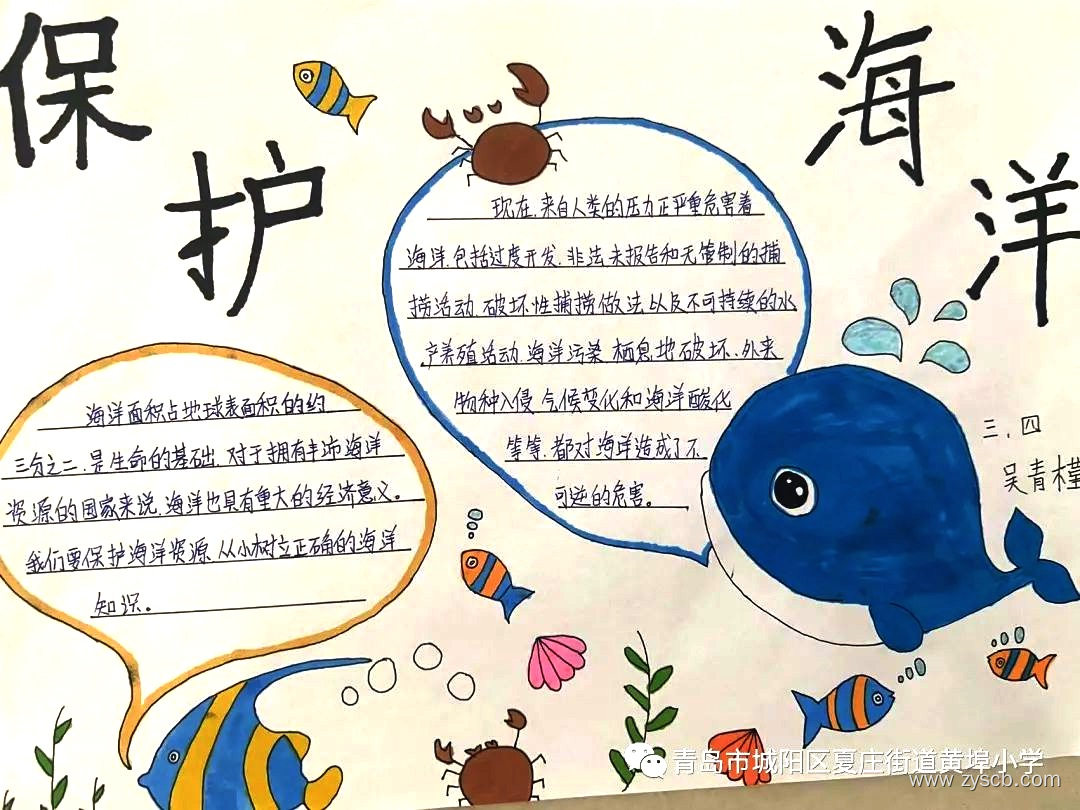 保护海洋
现在,来自人类的压力正严重危害着
海洋,包括过度开发,非法未报告和无管制的捕
捞活动,破坏性捕捞做法以及不可持续的水
产养殖活动,海洋污染,栖息地破坏、外来
物种入侵,气候变化和海洋酸化
等等,都对海洋造成了不
可逆的危害。
海洋面积占地球表面积的约
三分之二,是生命的基础,对于拥有丰沛海洋
资源的国家来说,海洋也具有重大的经济意义。
我们要保护海洋资源,从小树立正确的海洋
知识。
三、四
吴青槿
青岛市城阳区夏庄街道黄埠小学
www.zyscb.com